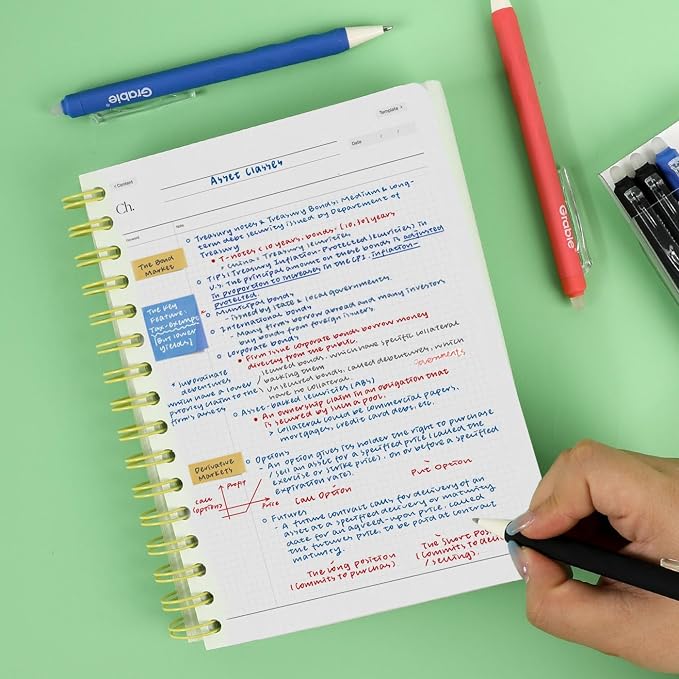 Grabie
Grabie
< Content
Template >
Date / /
Asset Classes
Ch.
Keyword
Note
The Bond
Market
o Treasury notes & Treasury Bonds: Medium & Long-
term debt security issued by Department of
Treasury
* T-notes < 10 years, bonds: (10,30) years
TIPS (Treasury Inflation-Protected Securities) in
U.S. The principal amount on these bonds is adjusted
in proportion to increases in the CPI. Inflation-
protected.
The Key
Feature:
Tax-exempt
[But lower
yields]
o Municipal bonds
- issued by state & local governments.
o International bonds
- Many firms borrow abroad and many investors
buy bonds from foreign issuers.
o Corporate bonds
* Firms issue corporate bonds borrow money
directly from the public.
secured bonds, which have specific collateral
backing them
Unsecured bonds, called debentures, which
have no collateral.
* Subordinate
debentures
which have a lower
priority claim to the
firm's assets
o Asset-backed securities (ABS)
* An ownership claim in an obligation that
is secured by such a pool.
> Collateral could be commercial papers,
mortgages, credit card debt, etc.
Derivative
Markets
o Options
- An option gives its holder the right to purchase
/ sell an asset for a specified price (called the
exercise or strike price), on or before a specified
expiration rate).
Call Option
Put Option
Call
(option)
Profit
Price
o Futures
- A future contract calls for delivery of an
asset at a specified delivery or maturity
date for an agreed-upon price, called
the futures price, to be paid at contract
maturity.
The long position
(commits to purchas)
The short posi
(commits to deli
/selling).